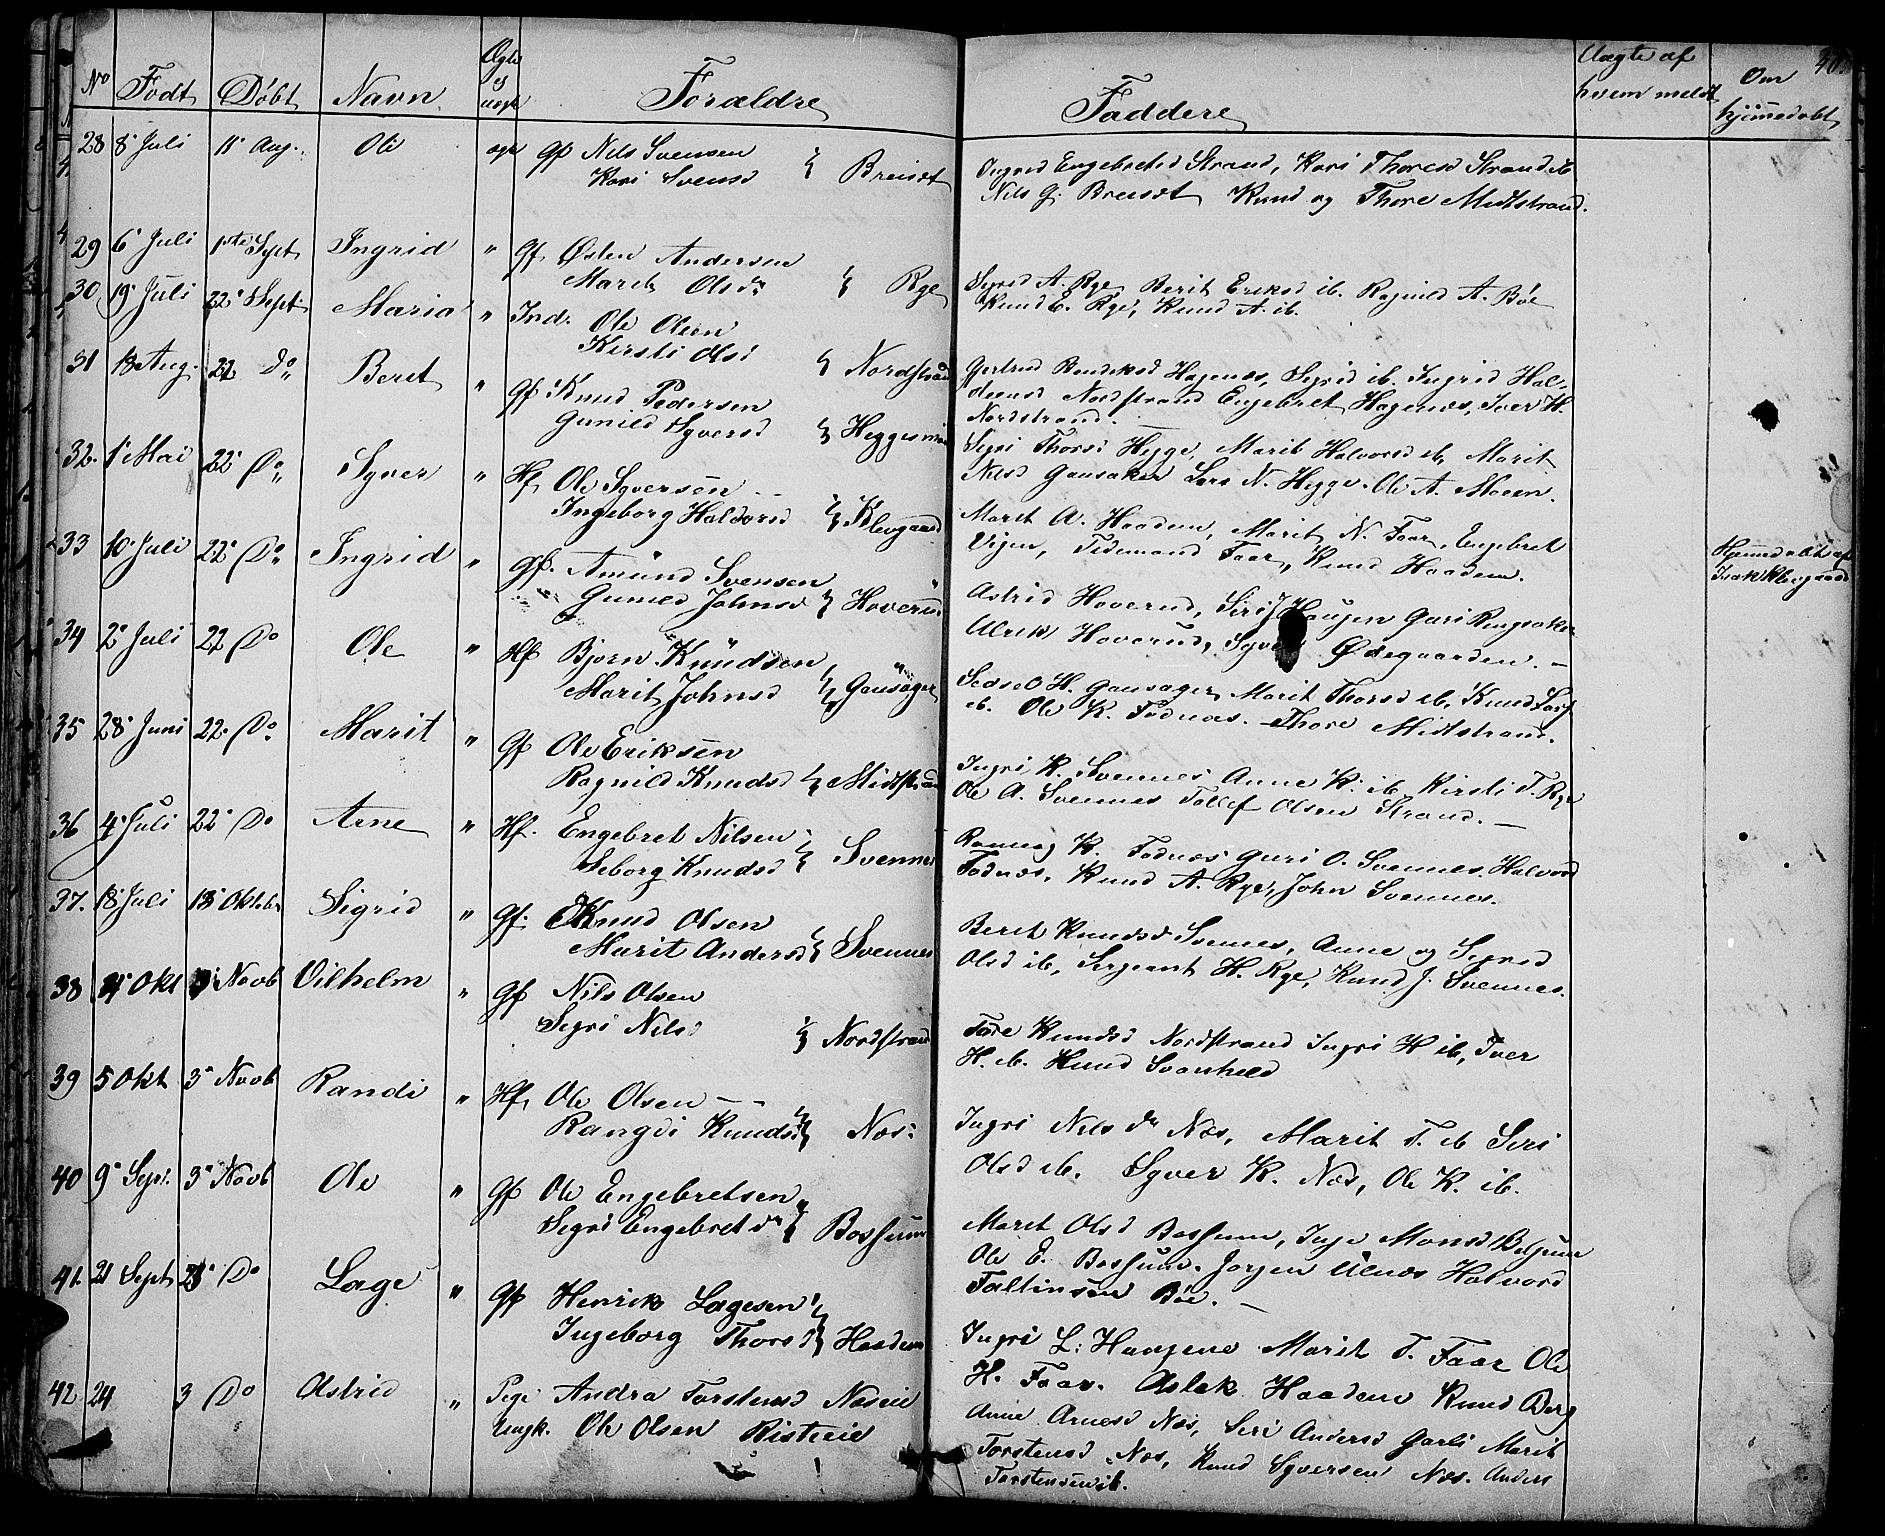 No Født Døbt Navn Ægte og uægte Forældre Faddere Uægte af hvem meldt Om hjemmedøbt
28 8 Juli 11 Aug. Ole ægte Gf Nils Svensen
Kari Svensd Breiset
Ingrid Engebretsd Strand, Kari Thoresd Strand ib
Nils G. Breiset Knud og Thore Midtstrand.
29 6 Juli 1ste Sept Ingrid " Gf Østen Andersen
Marit Olsdr Rye
Sigrd A. Rye Berit Eriksd ib. Ragnild A. Bøe
Knud E. Rye, Knud A. ib.
30 19 Juli 22 Sept Maria " Ind. Ole Olsen
Kirsti Olsd Nordstrand
Gertrud Hagenes, Sigrid ib. Ingrid Hal-
Nordstrand Engebret Hagenes, Iver H.
Nordstrand.
31 18 Aug. 22 Do Beret " Gf Knud Pedersen
Gunild Syversd
Sigri Thorsd Hegge, Marit Halvorsd ib, Marit
Nilsd Gausaker Lars N. Hegge. Ole A. Moeen.
32. 1 Mai 22 Do Syver " Hf Ole Syversen
Ingeborg Halvorsd Klevgaard
Marit A. Haadem, Marit N. Faar, Engebret
Vigen, Tidemand Faar, Knud Haadem.
33 10 Juli 22 Do Ingrid " Gf. Amund Svensen
Gunild Johnsd Hoverud
Astrid Hoverud, Siri Haugen Guri Ringsaker
Ulrik Hoverud, Syver Ødegaarden. —
af
Isak Klevgaard
34 2 Juli 22 Do Ole " Hf Bjørn Knudsen
Marit Johnsd Gausager
Sidsel H. Gausager Marit Thorsd ib, Knud
ib. Ole K. Fodnæs. Thore Midtstrand.
35 28 Juni 22 Do Marit " Gf Ole Eriksen
Ragnild Knudsd Midtstrand
Ingri K. Svennes Anne K. ib Kirsti T. Rye
Ole A. Svennes Tollef Olsen Strand. —
36 4 Juli 22 Do Arne " Hf. Engebret Nilsen
Seborg Knudsd Svennes
Rannog K. Fodnæs Guri O. Svennes Halvord
Fodnæs. Knud A. Rye, John Svennes.
37. 18 Juli 13 Oktober Sigrid " Gf. Knud Olsen
Marit Andersd Svennes
Berit Knudsd Svennes, Anne og Sigrid
Olsd ib, Sergeant H. Rye, Knud J. Svennes.
38 Okt Novb Vilhelm " Gf Nils Olsen
Sigri Nilsd Nordstrand
Tore Knudsd Nordstrand Ingri H ib, Iver
H. ib. Knud Svanheld
39 5 Okt 3 Novb Randi " Hf, Ole Olsen
Rangdi Knudsd Næs
Ingri Nilsdr Næs, Marit T. ib Siri
Olsd ib. Syver K. Næs, Ole K. ib.
40 9 Sept. 3 Novb Ole " Gf Ole Engebretsen
Sigrd Engebretdr Bossum
Marit Olsd Bossum, Inge Monsd
Ole E. Bossum. Jørgen Ulnæs Halvord
Fallinsen Bøe. —
41. 21 Sept Do Lage " Gf Henrik Lagesen
Ingeborg Thorsd Haadem
Ingri L. Haugene Marit T. Faar Ole
H. Faar. Aslak Haadem Knud Berg
42 24 3 Do Astrid " Pige Andra Torstensd Næseie
Ungk. Ole Olsen Risteeie
Anne Arnesd Næs, Siri Andersd Garli Marit
Torstensd Næs, Knud Syversen Næs. Anders
Torstensen ib.